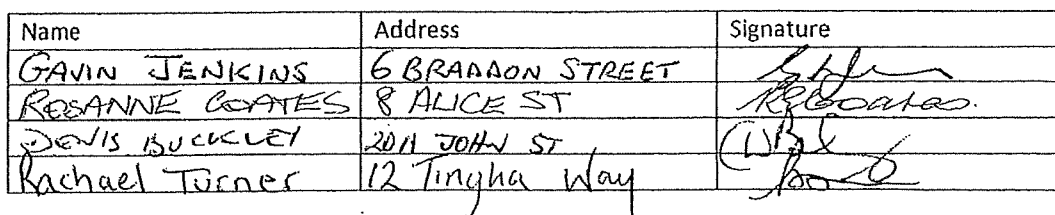 Name Address Signature
GAVIN JENKINS 6 BRADDON STREET
ROSANNE COATES 8 ALICE ST RECoates.
DENIS BUCKLEY JOHN ST
Rachael Turner 12 Tingha Way